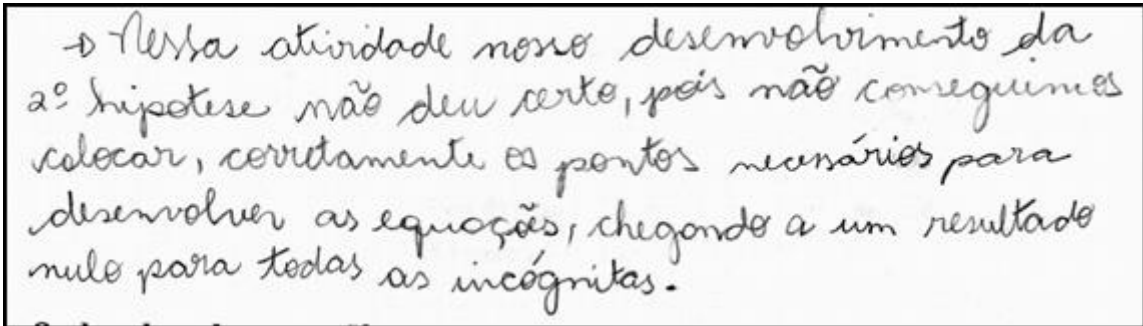 → Nessa atividade nosso desenvolvimento da
2º hipotese não deu certo, pois não conseguimos
colocar, corretamente os pontos necessários para
desenvolver as equações, chegando a um resultado
nulo para todas as incógnitas.